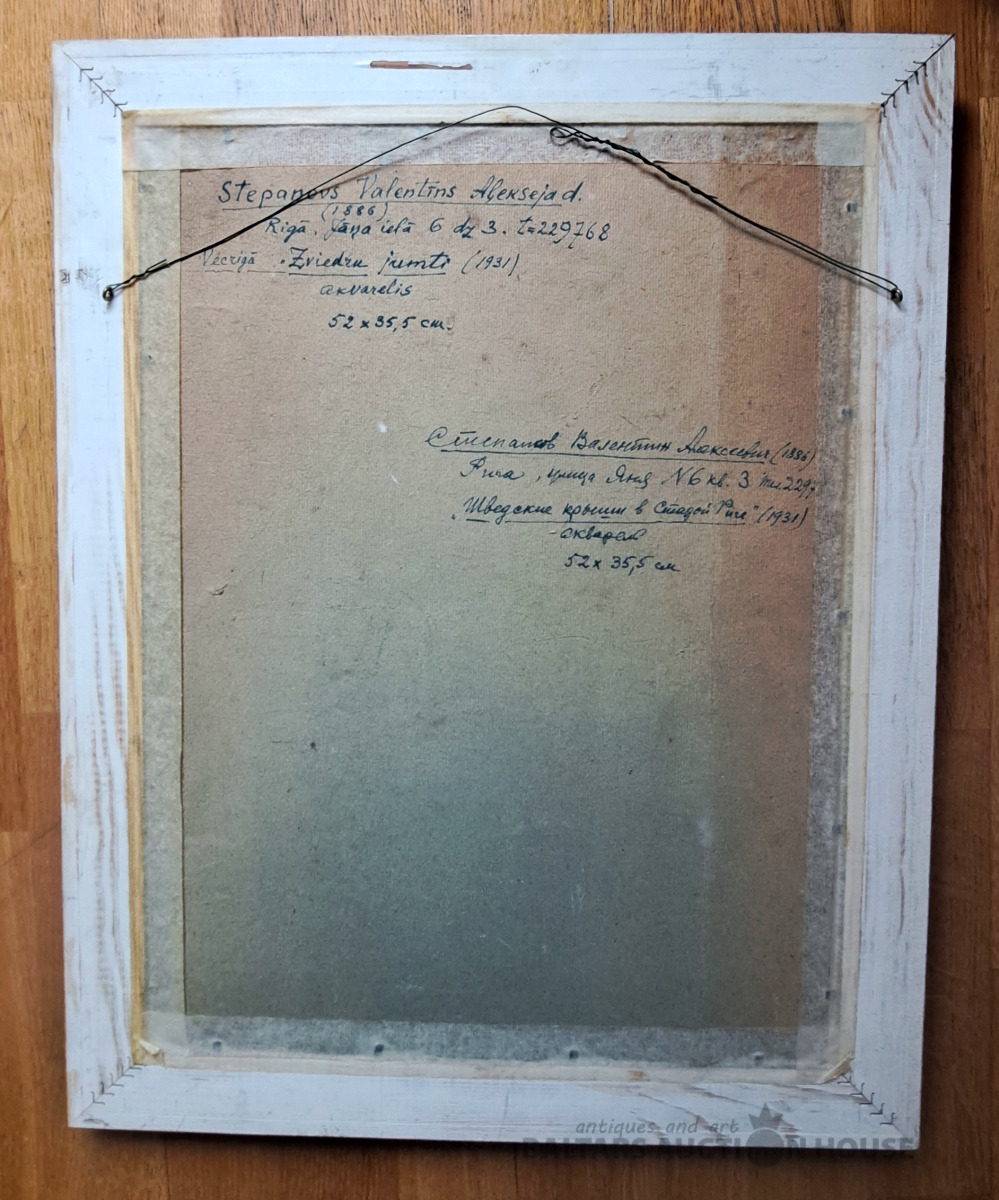 Stepanovs Valentīns Aļekseja d.
(1886)
Rīgā. Jāņa ielā 6 dz 3. t=229768
Vecrīgā. Zviedru jumti (1931)
akvarelis
52 x 35,5 cm.
Степанов Валентин Алексеевич (1886)
Рига, улица Яня N6 кв. 3 тел. 2297
"Шведские крыши в Старой Риге" (1931)
акварель
52 x 35,5 см
antiques and art
BALTARS AUCTION HOUSE